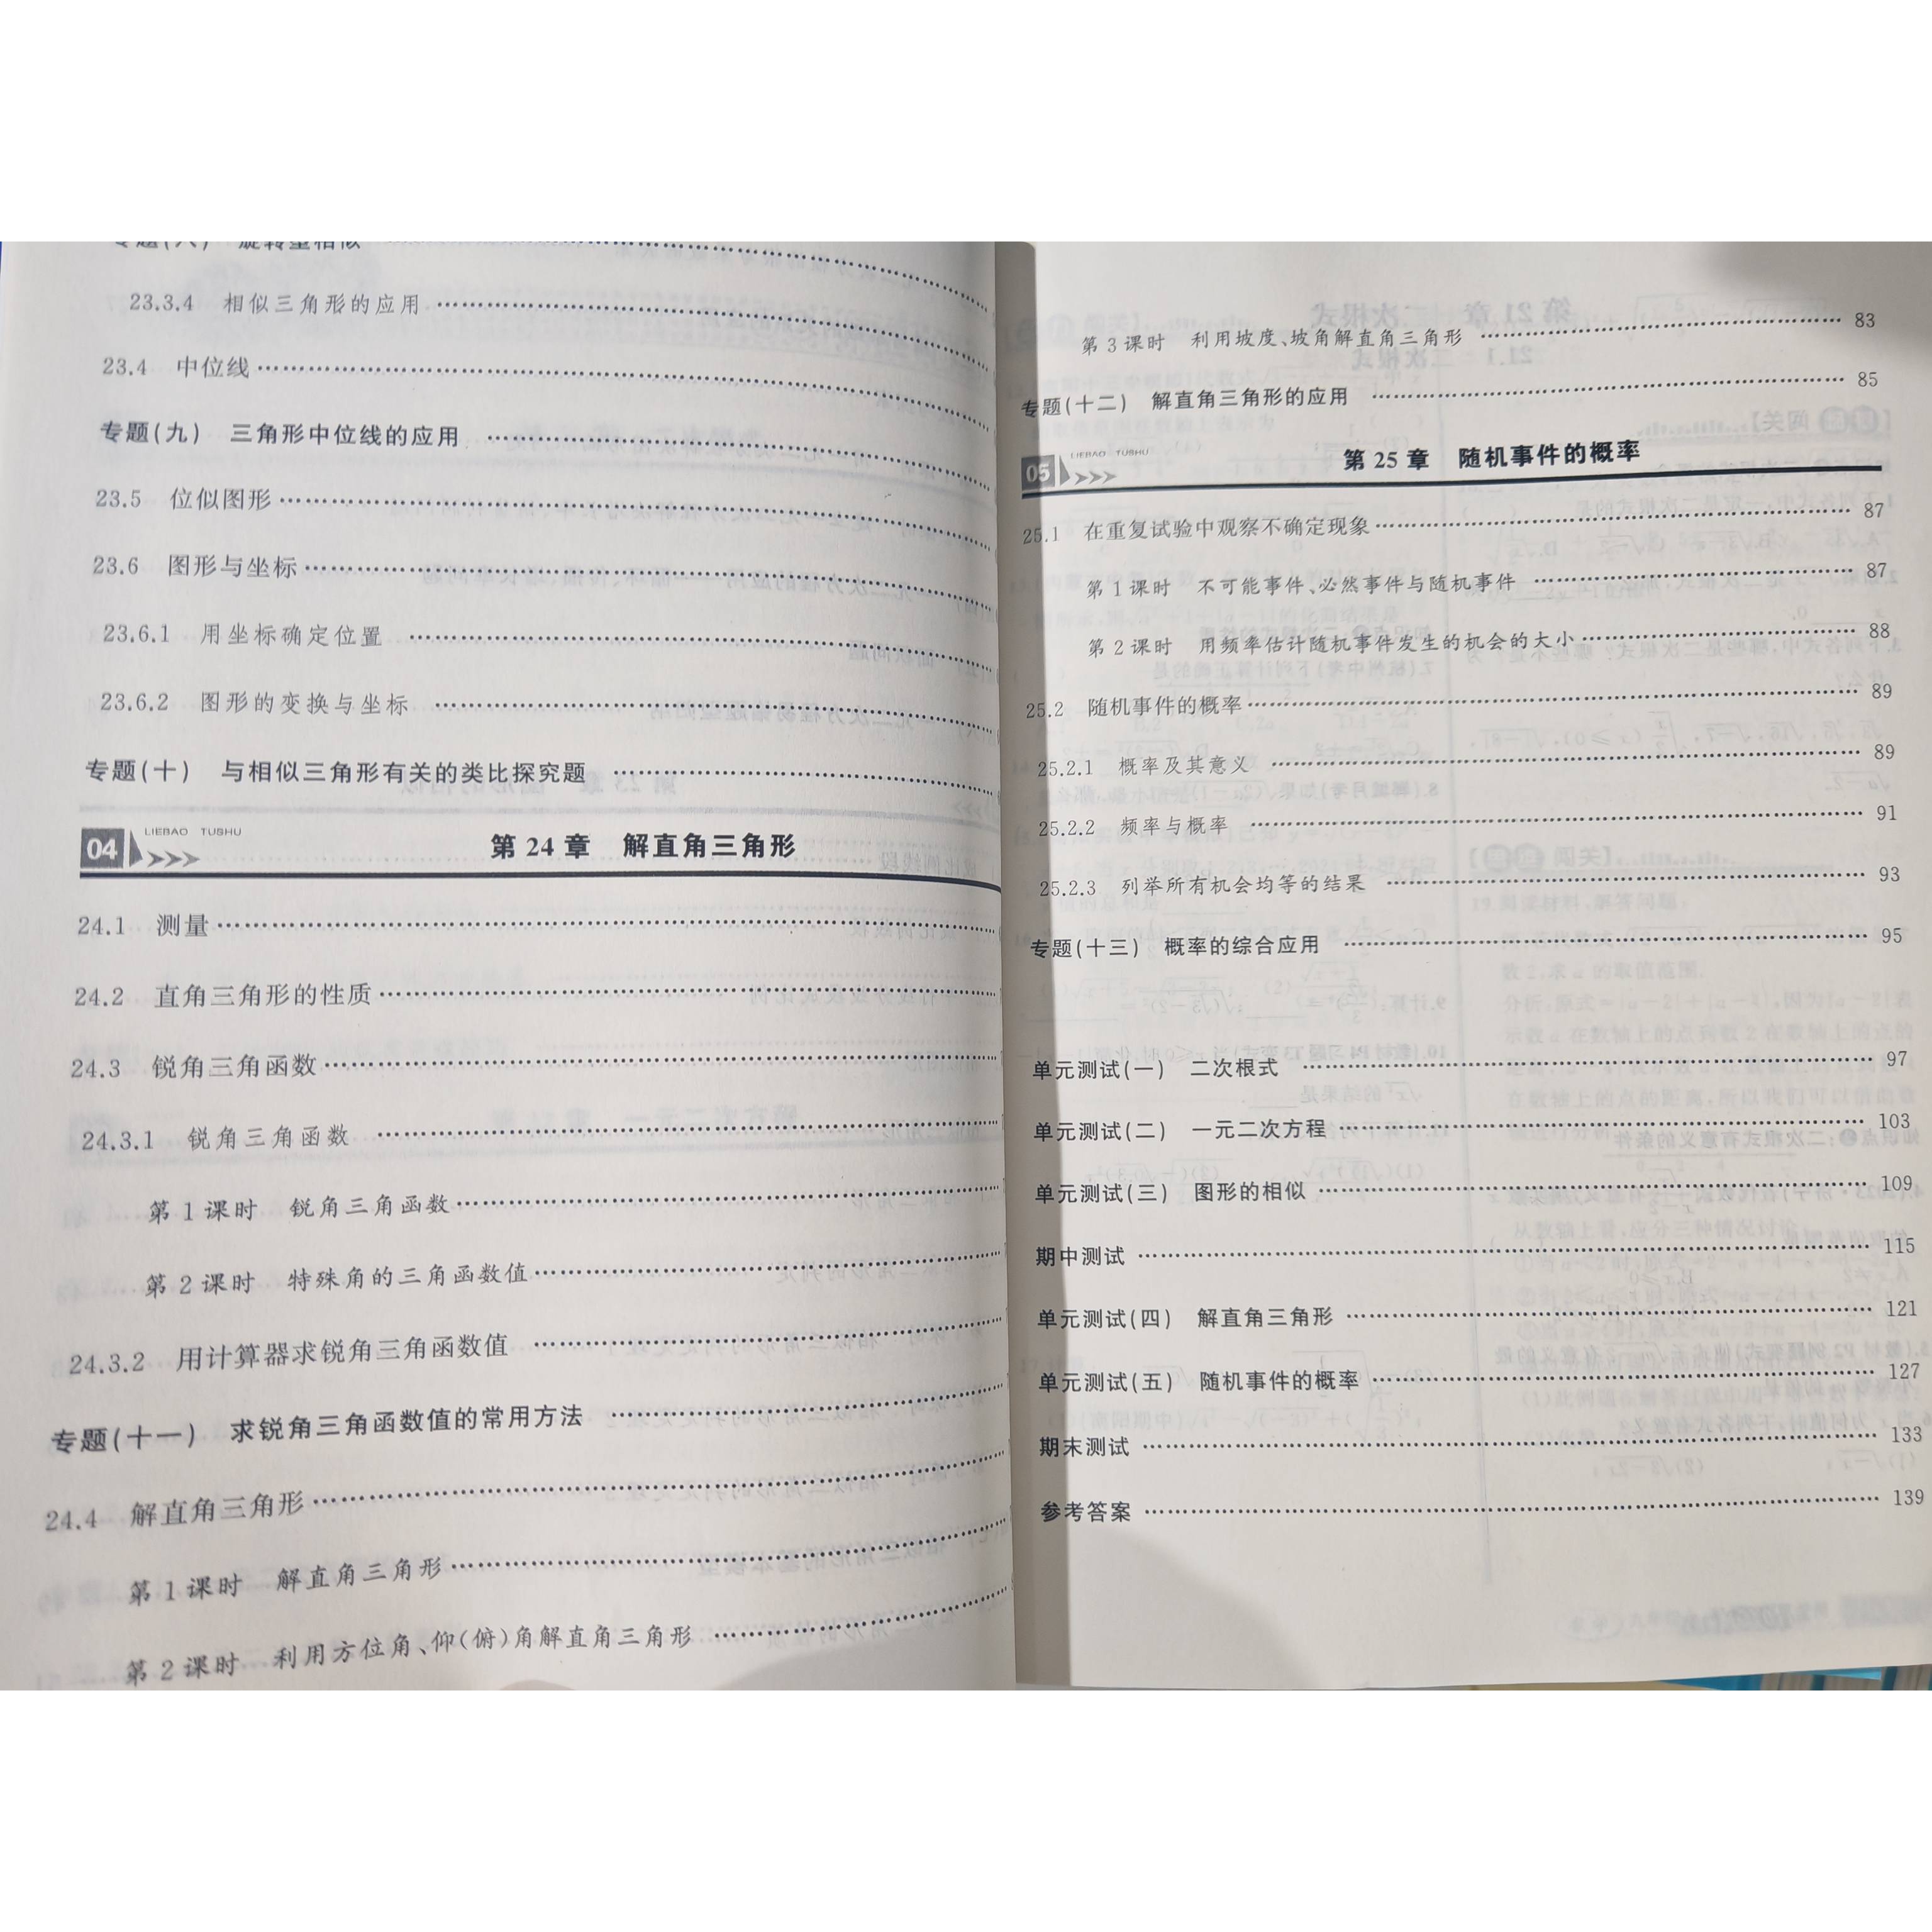 专题(八) 旋转型相似
23.3.4 相似三角形的应用
23.4 中位线
专题(九) 三角形中位线的应用
23.5 位似图形
23.6 图形与坐标
23.6.1 用坐标确定位置
23.6.2 图形的变换与坐标
专题(十) 与相似三角形有关的类比探究题
04 LIEBAO TUSHU 第 24 章 解直角三角形
24.1 测量
24.2 直角三角形的性质
24.3 锐角三角函数
24.3.1 锐角三角函数
第 1 课时 锐角三角函数
第 2 课时 特殊角的三角函数值
24.3.2 用计算器求锐角三角函数值
专题(十一) 求锐角三角函数值的常用方法
24.4 解直角三角形
第 1 课时 解直角三角形
第 2 课时 利用方位角、仰(俯)角解直角三角形
第 3 课时 利用坡度、坡角解直角三角形 83
专题(十二) 解直角三角形的应用 85
05 LIEBAO TUSHU 第 25 章 随机事件的概率
25.1 在重复试验中观察不确定现象 87
第 1 课时 不可能事件、必然事件与随机事件 87
第 2 课时 用频率估计随机事件发生的机会的大小 88
25.2 随机事件的概率 89
25.2.1 概率及其意义 89
25.2.2 频率与概率 91
25.2.3 列举所有机会均等的结果 93
专题(十三) 概率的综合应用 95
单元测试(一) 二次根式 97
单元测试(二) 一元二次方程 103
单元测试(三) 图形的相似 109
期中测试 115
单元测试(四) 解直角三角形 121
单元测试(五) 随机事件的概率 127
期末测试 133
参考答案 139